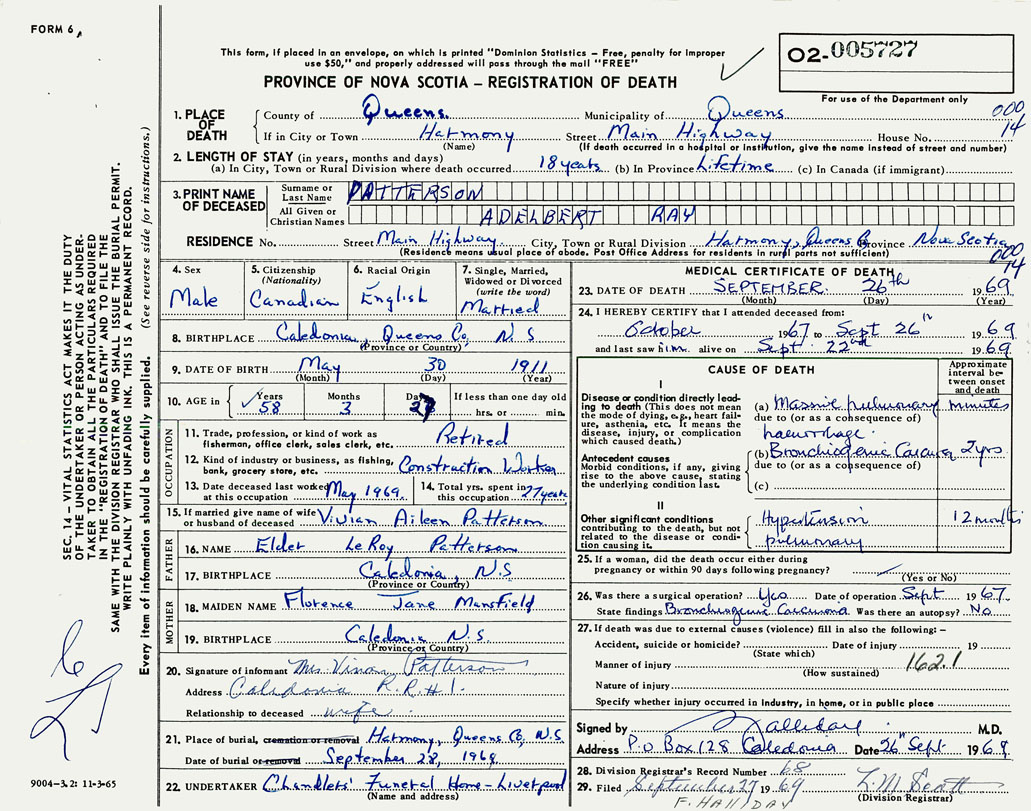 FORM 6A
This form, if placed in an envelope, on which is printed "Dominion Statistics - Free, penalty for improper
use $50," and properly addressed will pass through the mail "FREE"
O2-005727
For use of the Department only
PROVINCE OF NOVA SCOTIA - REGISTRATION OF DEATH
000
14
1. PLACE OF DEATH
County of Queens. Municipality of Queens
If in City or Town Harmony Street Main Highway House No.
(Name) (If death occurred in a hospital or institution, give the name instead of street and number)
2. LENGTH OF STAY (in years, months and days)
(a) In City, Town or Rural Division where death occurred 18 years (b) In Province Lifetime (c) In Canada (if immigrant)
3. PRINT NAME OF DECEASED
Surname or Last Name PATTERSON
All Given or Christian Names ADELBERT RAY
RESIDENCE No. Street Main Highway City, Town or Rural Division Harmony, Queens Co Province Nova Scotia
(Residence means usual place of abode. Post Office Address for residents in rural parts not sufficient)
000
14
4. Sex
Male
5. Citizenship
(Nationality)
Canadian
6. Racial Origin
English
7. Single, Married,
Widowed or Divorced
(write the word)
Married
8. BIRTHPLACE Caledonia, Queens Co, N.S
(Province or Country)
9. DATE OF BIRTH May 30 1911
(Month) (Day) (Year)
10. AGE in
Years Months Days If less than one day old
58 3 27 hrs. or min.
OCCUPATION
11. Trade, profession, or kind of work as
fisherman, office clerk, sales clerk, etc. Retired
12. Kind of industry or business, as fishing,
bank, grocery store, etc. Construction Worker
13. Date deceased last worked
at this occupation May 1969.
14. Total yrs. spent in
this occupation 27 years
15. If married give name of wife
or husband of deceased Vivian Aileen Patterson
FATHER
16. NAME Elder LeRoy Patterson
17. BIRTHPLACE Caledonia, N.S
(Province or Country)
MOTHER
18. MAIDEN NAME Florence Jane Mansfield
19. BIRTHPLACE Caledonia N.S.
(Province or Country)
20. Signature of informant Mrs. Patterson
Address Caledonia R.R.#1.
Relationship to deceased wife.
21. Place of burial, cremation or removal Harmony, Queens Co, N.S
Date of burial or removal September 28, 1969
22. UNDERTAKER Chandlers' Funeral Home - Liverpool
(Name and address)
MEDICAL CERTIFICATE OF DEATH
23. DATE OF DEATH SEPTEMBER. 26th 1969
(Month) (Day) (Year)
24. I HEREBY CERTIFY that I attended deceased from:
October 1967 to Sept 26th 1969
and last saw him. alive on Sept 22nd 1969.
CAUSE OF DEATH
Approximate
interval be-
tween onset
and death
I
Disease or condition directly lead-
ing to death (This does not mean
the mode of dying, e.g., heart fail-
ure, asthenia, etc. It means the
disease, injury, or complication
which caused death.)
(a) Massive pulmonary minutes
due to (or as a consequence of)
haemorrhage.
Antecedent causes
Morbid conditions, if any, giving
rise to the above cause, stating
the underlying condition last.
(b) Bronchiogenic Carcinoma 2yrs
due to (or as a consequence of)
(c)
II
Other significant conditions
contributing to the death, but not
related to the disease or condi-
tion causing it.
Hypertension 12 months
pulmonary
25. If a woman, did the death occur either during
pregnancy or within 90 days following pregnancy?
(Yes or No)
26. Was there a surgical operation? Yes Date of operation Sept 1967.
State findings Bronchiogenic Carcinoma Was there an autopsy? No
27. If death was due to external causes (violence) fill in also the following: -
Accident, suicide or homicide? Date of injury 19
(State which)
Manner of injury 162.1
(How sustained)
Nature of injury
Specify whether injury occurred in industry, in home, or in public place
Signed by Halliday. M.D.
Address P.O Box 128 Caledonia Date 26th Sept 1969
28. Division Registrar's Record Number 68
29. Filed September 27 1969 L.M. Scott
(Division Registrar)
F. HALLIDAY
SEC. 14 - VITAL STATISTICS ACT MAKES IT THE DUTY
OF THE UNDERTAKER OR PERSON ACTING AS UNDER-
TAKER TO OBTAIN ALL THE PARTICULARS REQUIRED
IN THE "REGISTRATION OF DEATH" AND TO FILE THE
SAME WITH THE DIVISION REGISTRAR WHO SHALL ISSUE THE BURIAL PERMIT.
WRITE PLAINLY WITH UNFADING INK. THIS IS A PERMANENT RECORD.
Every item of information should be carefully supplied. (See reverse side for instructions.)
9004-3.2: 11-3-65